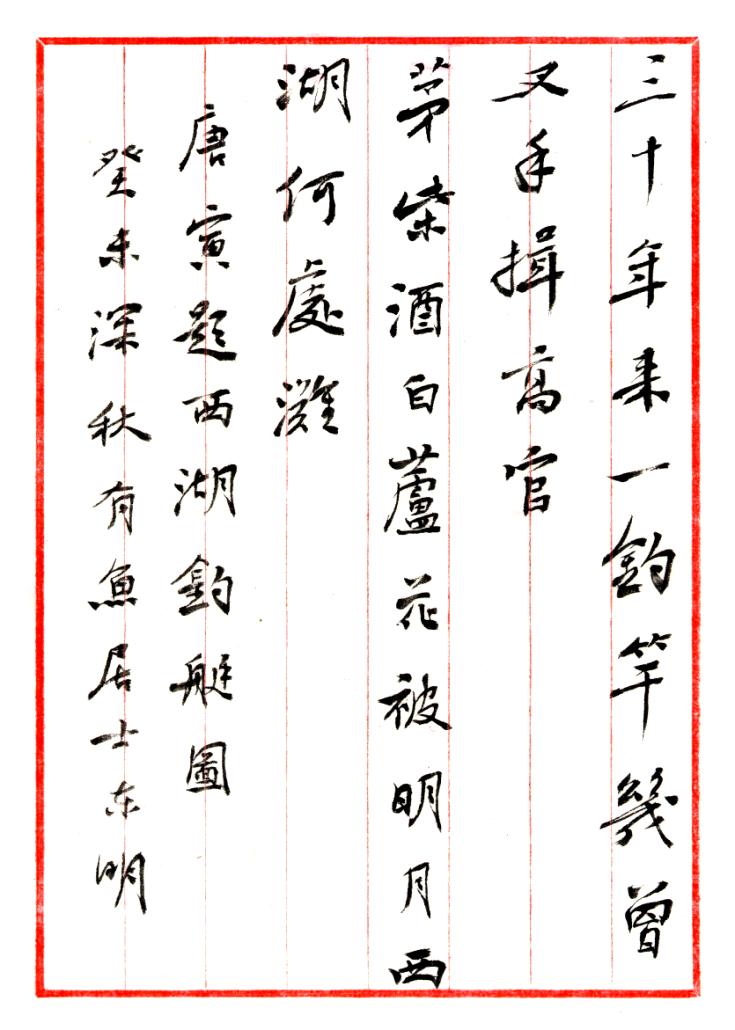 三十年来一釣竿幾曾
叉手揖高官
茅柴酒白蘆花被明月西
湖何處灘
唐寅題西湖釣艇圖
癸未深秋有魚居士东明